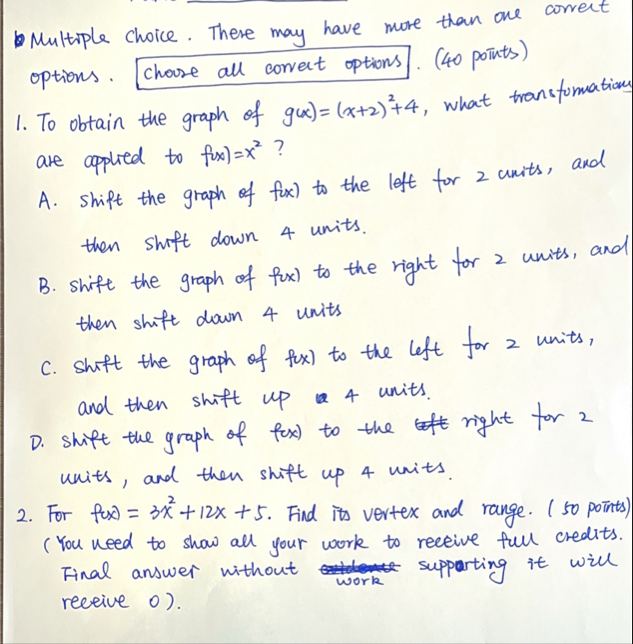 Multiple Choice. There may have more than one correct
options. Choose all correct options. (40 points)
1. To obtain the graph of g(x)=(x+2)²+4, what transformations
are applied to f(x)=x² ?
A. Shift the graph of f(x) to the left for 2 units, and
then shift down 4 units.
B. Shift the graph of f(x) to the right for 2 units, and
then shift down 4 units
C. Shift the graph of f(x) to the left for 2 units,
and then shift up 4 units.
D. Shift the graph of f(x) to the left right for 2
units, and then shift up 4 units.
2. For f(x) = 3x²+12x+5. Find its vertex and range. (50 points)
(You need to show all your work to receive full credits.
Final answer without evidence supporting it will
work
receive 0).